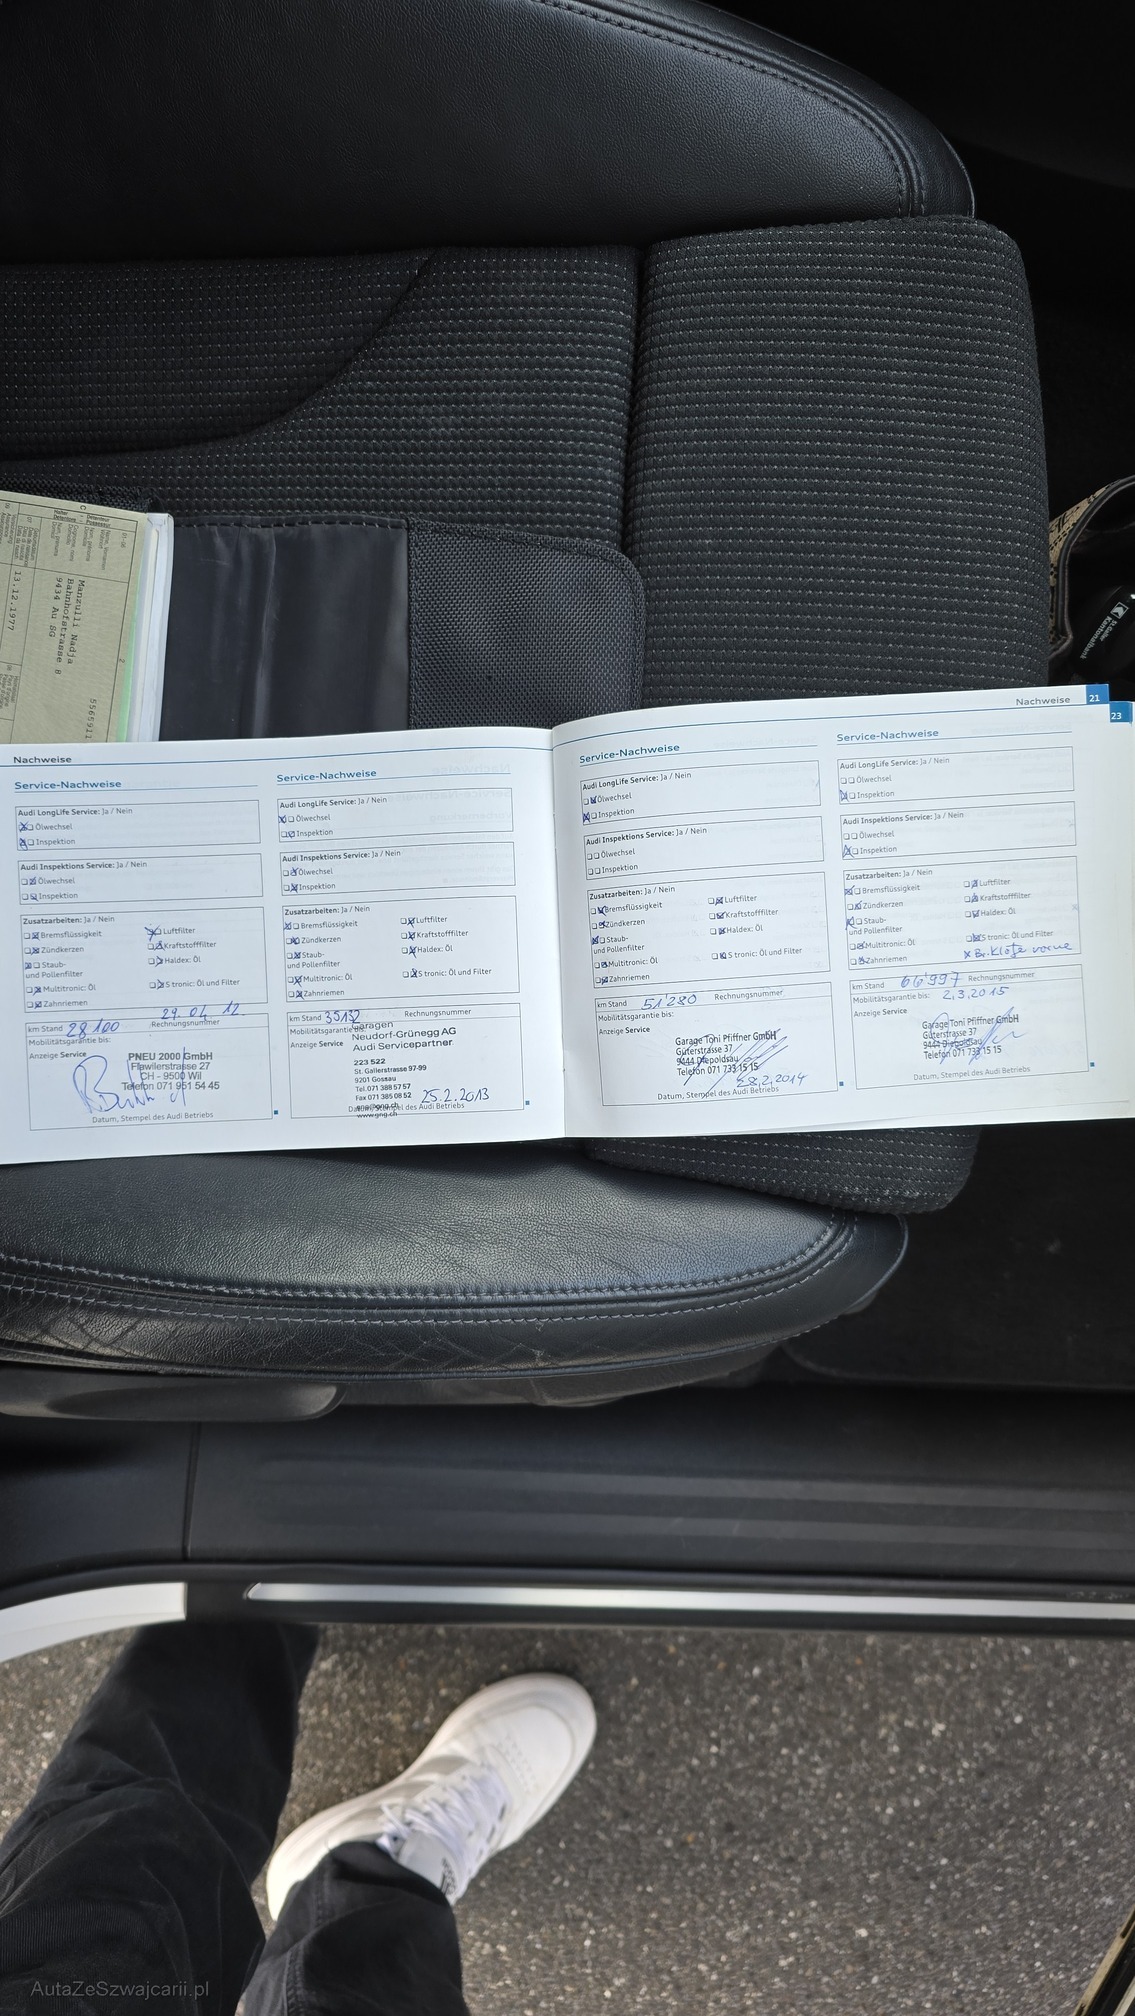 Manzulli Nadja
Bahnhofstrasse 8
9434 Au SG
13.12.1977
St.Galler
Kantonalbank
Nachweise
Service-Nachweise
Audi LongLife Service: Ja / Nein
Ölwechsel
Inspektion
Audi Inspektions Service: Ja / Nein
Ölwechsel
Inspektion
Zusatzarbeiten: Ja / Nein
Bremsflüssigkeit
Luftfilter
Zündkerzen
Kraftstofffilter
Staub-
und Pollenfilter
Haldex: Öl
Multitronic: Öl
S tronic: Öl und Filter
Zahnriemen
29.04.12
km Stand 28 100 Rechnungsnummer
Mobilitätsgarantie bis:
Anzeige Service
PNEU 2000 GmbH
Flawilerstrasse 27
CH - 9500 Wil
Telefon 071 951 54 45
Datum, Stempel des Audi Betriebs
Service-Nachweise
Audi LongLife Service: Ja / Nein
Ölwechsel
Inspektion
Audi Inspektions Service: Ja / Nein
Ölwechsel
Inspektion
Zusatzarbeiten: Ja / Nein
Bremsflüssigkeit
Luftfilter
Zündkerzen
Kraftstofffilter
Staub-
und Pollenfilter
Haldex: Öl
Multitronic: Öl
S tronic: Öl und Filter
Zahnriemen
km Stand 35132 Rechnungsnummer
Mobilitätsgarantie bis:
Garagen
Anzeige Service
Neudorf-Grünegg AG
Audi Servicepartner
223 522
St. Gallerstrasse 97-99
9201 Gossau
Tel. 071 388 57 57
Fax 071 385 08 52
25.2.2013
Datum, Stempel des Audi Betriebs
www.gng.ch
Nachweise 21
23
Service-Nachweise
Audi LongLife Service: Ja / Nein
Ölwechsel
Inspektion
Audi Inspektions Service: Ja / Nein
Ölwechsel
Inspektion
Zusatzarbeiten: Ja / Nein
Bremsflüssigkeit
Luftfilter
Zündkerzen
Kraftstofffilter
Staub-
und Pollenfilter
Haldex: Öl
Multitronic: Öl
S tronic: Öl und Filter
Zahnriemen
km Stand 51'280 Rechnungsnummer
Mobilitätsgarantie bis:
Anzeige Service
Garage Toni Pfiffner GmbH
Güterstrasse 37
9444 Diepoldsau
Telefon 071 733 15 15
28.2.2014
Datum, Stempel des Audi Betriebs
Service-Nachweise
Audi LongLife Service: Ja / Nein
Ölwechsel
Inspektion
Audi Inspektions Service: Ja / Nein
Ölwechsel
Inspektion
Zusatzarbeiten: Ja / Nein
Bremsflüssigkeit
Luftfilter
Zündkerzen
Kraftstofffilter
Staub-
und Pollenfilter
Haldex: Öl
Multitronic: Öl
S tronic: Öl und Filter
Zahnriemen
x Br.Klötze vorne
km Stand 66'997 Rechnungsnummer
Mobilitätsgarantie bis: 2.3.2015
Anzeige Service
Garage Toni Pfiffner GmbH
Güterstrasse 37
9444 Diepoldsau
Telefon 071 733 15 15
Datum, Stempel des Audi Betriebs
AutaZeSzwajcarii.pl